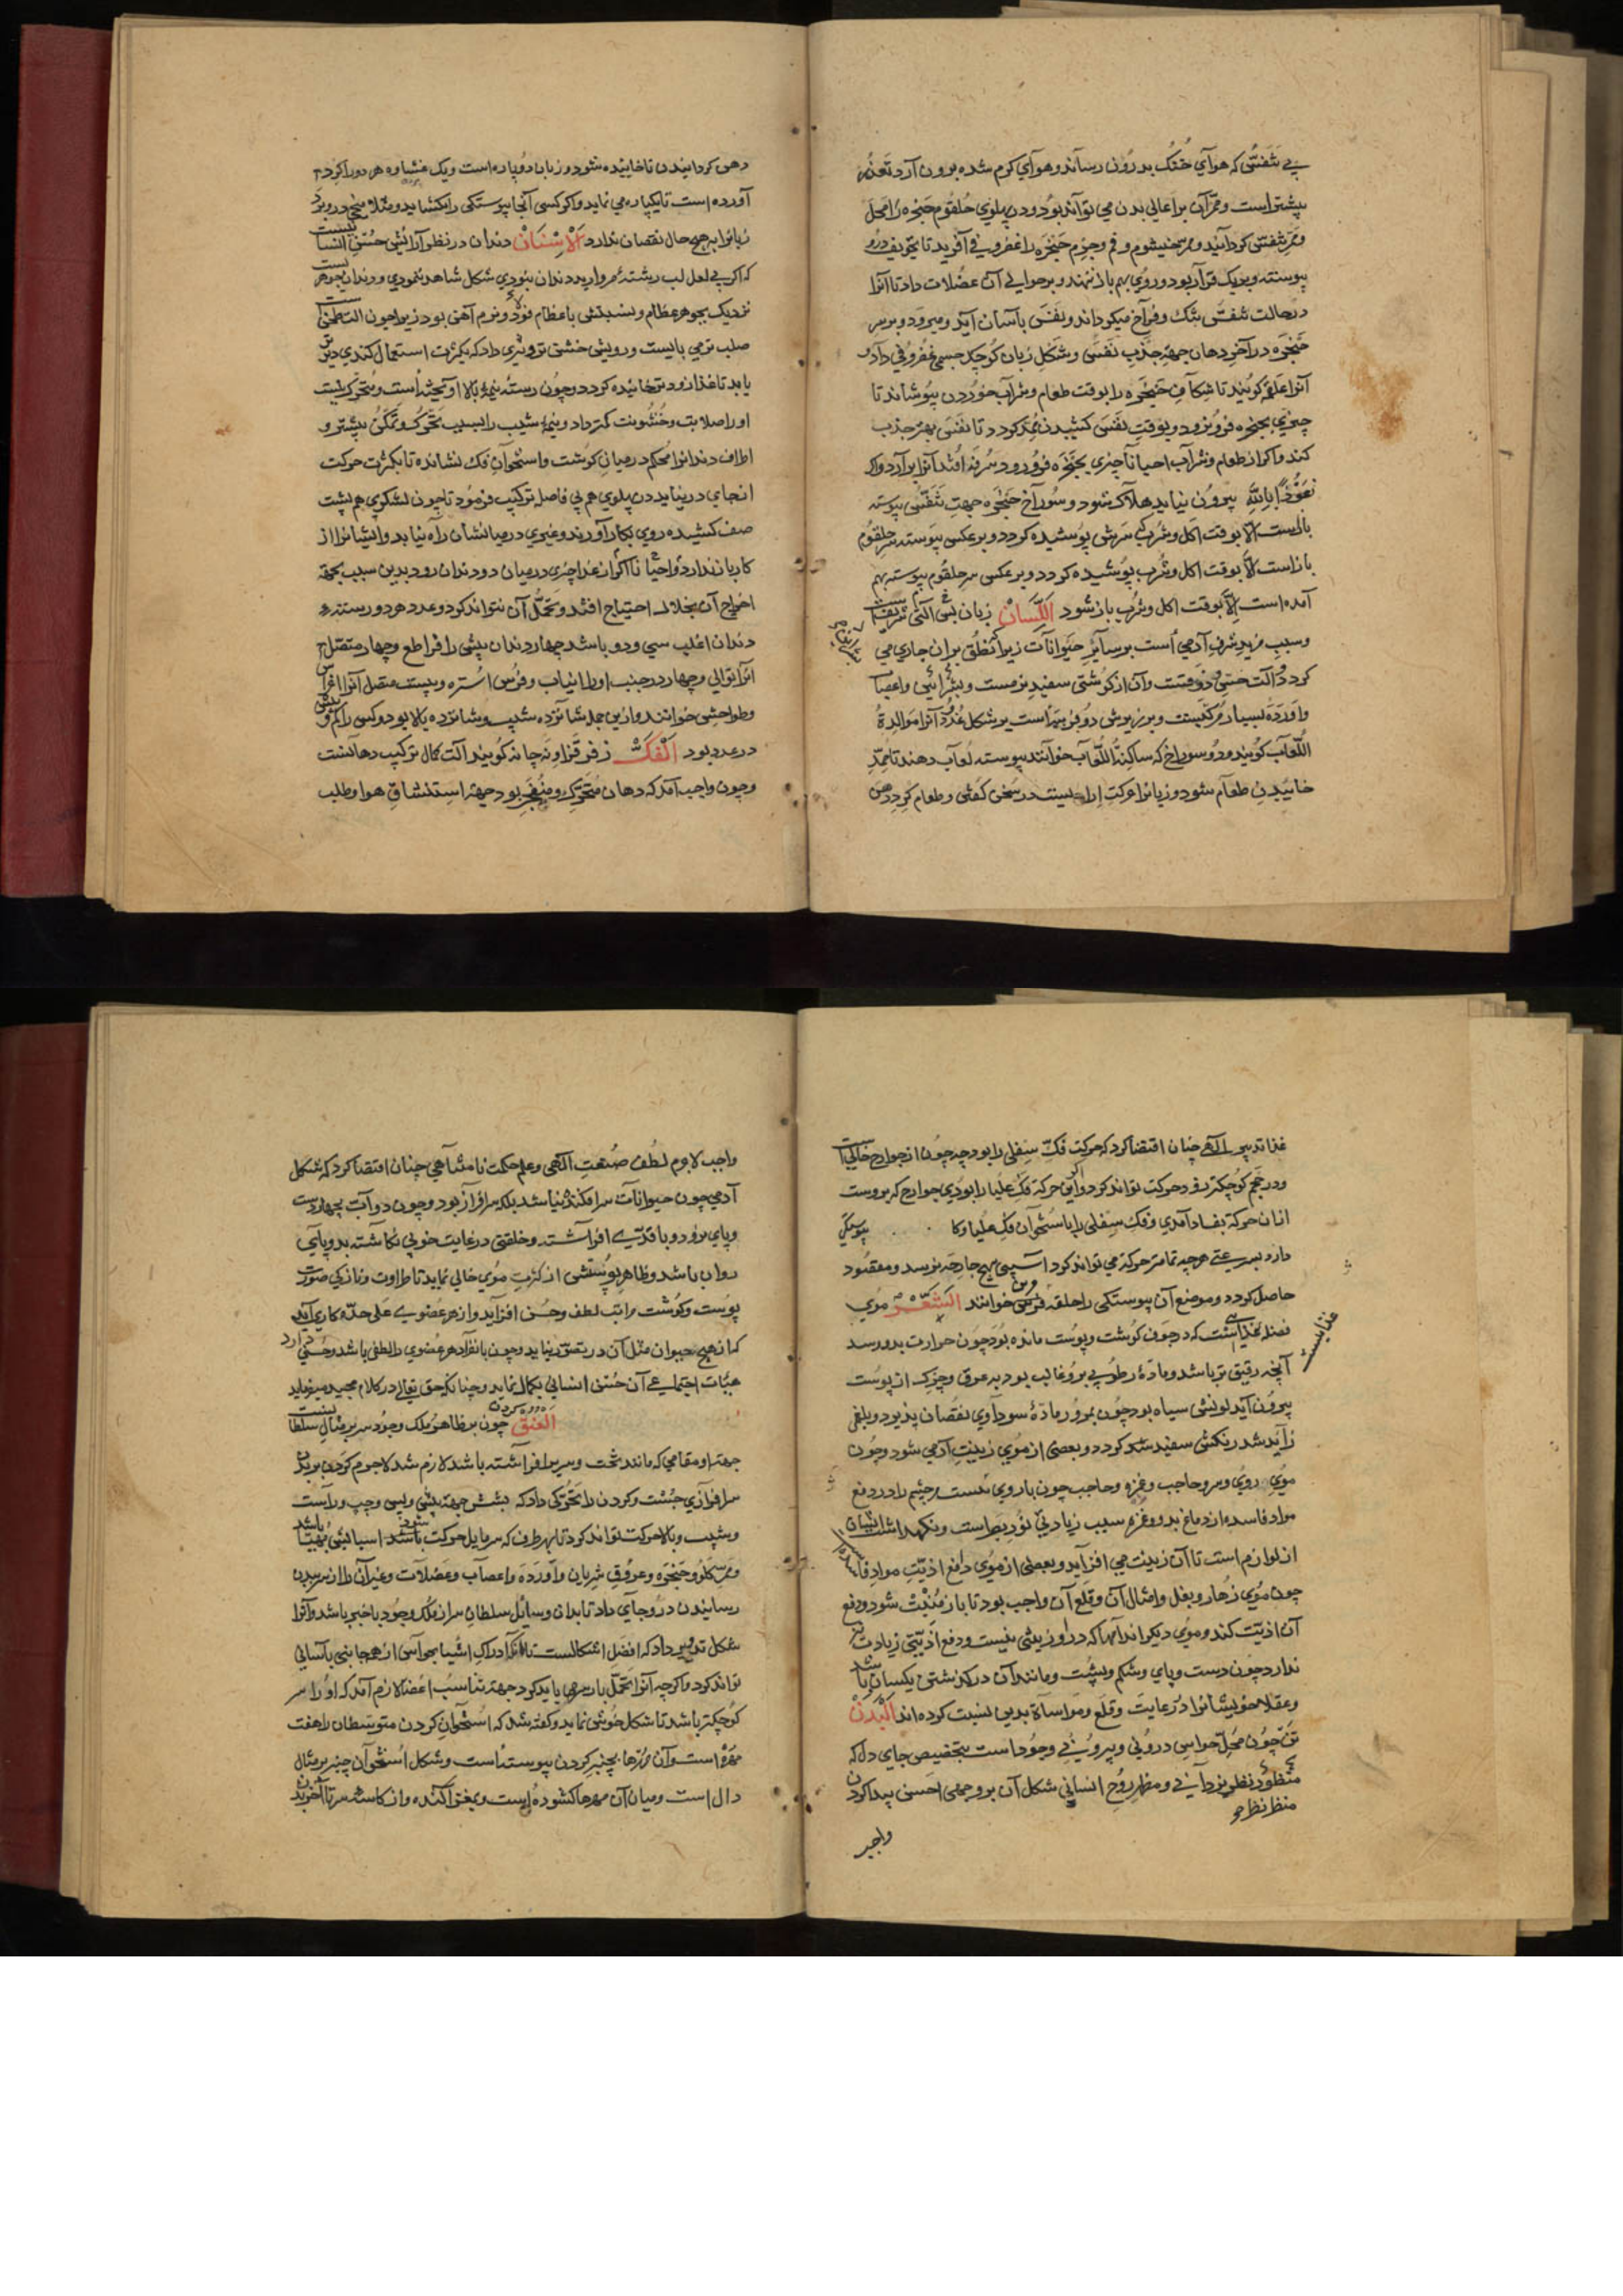 بی تنفسی که هوای خنک بدرون رساند و هوای گرم شده برون آرد تعذر
بیشتر است و ممر آن بر اعالی بدن می تواند بود و در پهلوی حلقوم حنجره را محل
و ممر تنفس گردانید و ممر خیشوم و فم و جرم حنجره را غضروفی آفرید تا تجویف درو
پیوسته و بریک قرار بود و روی بهم باز ننهد و بر حوالی آن عضلات داد تا آنرا
در حالت تنفس تنگ و فراخ میگرداند و نفس بآسان آید و میرود و بر سر
حنجره در آخر دهان جهة جذب نفس و شکل زبان کوچک جسم غضروفی داد و
آنرا گویند تا شکاف حنجره را بوقت طعام و شراب خوردن بپوشاند تا
چیزی بحنجره فرو نرود و بوقت نفس کشیدن گردد تا نفس بهتر جذب
کند و اگر از طعام و شراب احیانا چیزی بحنجره فرو رود سرفه افتد آنرا بر آرد و اگر
نعوذ بالله بیرون نیاید هلاک شود و سوراخ حنجره جهت تنفس پیوسته
باز است الا بوقت اکل و شرب سرش پوشیده گردد و بر عکس پیوسته سر حلقوم
باز است الا بوقت اکل و شرب پوشیده گردد و بر عکس سر حلقوم پیوسته بهم
آمده است الا بوقت اکل و شرب باز شود اللسان زبان آلتی شریف است
و سبب مزید شرف آدمی است بر سایر حیوانات زیرا که نطق بران جاری می
گردد و آلت حس ذوقست و آن از گوشتی سفید نرمست و شرائین و اعصاب
و اورده بسیار مرکبست و بر زیرش دو است بر شکل غدد آنرا مولدة
اللعاب گویند و دو سوراخ که ساکبة اللعاب خوانند پیوسته لعاب دهند تا ممد
خاییدن طعام شود و زبانرا حرکت ارادیست در سخن گفتن و طعام گرد دهن
دهن گردانیدن تا خاییده شود و زبان دو پاره است و یک غشا و هر دو را گرد
آورده است تا یکپاره می نماید و اگر کسی آنجا پیوستگی را بگشاید و مثلا میخی درو برد
زبانرا به هیچ حال نقصان ندارد الاسنان دندان در نظر آرایش حسن انسانیست
که اگر بی لعل لب رشته مروارید دندان نبودی شکل شاهد ننمودی و دندان بجوهر
نزدیک بجوهر عظام و نسبتش با عظام فولاد و نرم آهن بود زیرا چون آلت طحنست
صلب تر می بایست و رویش خشن تر و تیزی داد که بکثرت استعمال کندی دیر تر
یابد تا غذا زودتر خائیده گردد و چون رسته نیمه بالا آویخته است و متحرک نیست
او را صلابت و خشونت کمتر داد و نیمه شیب را بسبب تحرک و تمکن بیشتر و
اطراف دندانرا محکم در میان گوشت و استخوان فک نشانده تا بکثرت حرکت
از جای در نیاید در پهلوی هم بی فاصله ترکیب فرمود تا چون لشکری هم پشت
صف کشیده روی بکار آورند و غیری در میانشان راه نیابد و ایشانرا از
کار باز ندارد و احیانا اگر از غذا چیزی در میان دو دندان رود بدین سبب بجهة
اخراج آن بخلال احتیاج افتد و تحمل آن نتواند کرد و عدد هر دو رسته
دندان اغلب سی و دو باشد چهار دندان پیش را قواطع و چهار متصل
آنرا توالی و چهار در جنب او را انیاب و بیست متصل آنرا اضراس
و طواحن خوانند و ازین جمله شانزده شیب و شانزده بالا بود و کس را کم و بیش
در عدد بود الفک زفر فرا و نه چانه گویند آلت کمال ترکیب دهانست
و چون واجب آمد که دهان متحرک و منفجر بود جهة استنشاق هوا و طلب
غذا تدبیر الهی چنان اقتضا کرد که حرکت فک سفلی را بود چه چون از جوارح خالیست
و در حجم کوچکتر زود حرکت تواند کرد و اگر این حرکة فک علیا را بودی جوارح که بروست
از آن حرکة بفساد آمدی و فک سفلی را با استخوان فک علیا و کا پیوستگی
دارد بسرعتی هر چه تمامتر حرکة می تواند کرد آسیبی بهیچ جارحه نرسد و مقصود
حاصل گردد و موضع آن پیوستگی را حلقه خوانند الشعر موی
فضله غذائیست که در جوف گوشت و پوست مانده بود چون حرارت بدو رسد
آنچه رقیق تر باشد و ماده رطوبی برو غالب بود به عرق و چرک از پوست
بیرون آید لونش سیاه بود چون بمرور ماده سوداوی نقصان پذیرد و بلغمی
زاید شد رنگش سفید شد گردد و بعضی از موی زینت آدمی شود چون
موی روی و سر و حاجب و غمزه و حاجب چون باروی است چشم را در دفع
مواد فاسده از دماغ بدو و غمزه سبب زیادتی نور بصر است و نگهداشت ایشان
از لوازم است تا آن زینت می افزاید و بعضی از موی دافع اذیت مواد فاسد
چون موی زهار و بغل و امثال آن و قلع آن واجب بود تا باز منبت شود و دفع
آن اذیت کند و موی دیگر اندامها که در او زینتی نیست و دفع اذیتی زیادت نیز
ندارد چون دست و پای و شکم و پشت و مانند آن در گذشتن یکسان باشد
و عقلا خویشانرا در رعایت و قلع و مواساة بدین نسبت کرده اند البدن
تن چون محل حواس درونی و بیرونی وجود است بتخصیص جای دل که
منظور نظر یزدانی و مظهر روح انسانی شکل آن بر وجهی احسن پیدا کردن
منظر نظر
واجب
واجب لاجرم لطف صنعت الهی و علم حکمت نامتناهی چنان اقتضا کرد که شکل
آدمی چون حیوانات سرافکنده نباشد بلکه سرافراز بود و چون دوآب بچهار دست
و پای نرود و با قدی افراشته و خلقتی در غایت خوبی نگاشته بدو پای
روان باشد و ظاهر پوستش از کثرت موی خالی نماید تا طراوت و نازکی صورت
پوست و گوشت مراتب لطف و حسن افزاید و از هر عضوی علی حده کاری آید
که از هیچ حیوان مثل آن در تصور نیاید و چون بانفراد هر عضوی را لطفی باشد و حسنی دارد
هیأت اجتماعی آن حسن انسانی بکمال نماید و چنانکه حق تعالی در کلام مجید میفرماید
العنق چون بر ظاهر ملک وجود سر بر مثال سلطانیست
جهة او مقامی که مانند تخت و سریر افراشته باشد لازم شد لاجرم گردن بر بدن
سرافرازی جست و گردن را تحرکی داد که بشش جهة پیش و پس و چپ و راست
و شیب و بالا حرکت تواند کرد تا بهر طرف که سر مایل حرکت شود اسبابش مهیا باشد
و ممر گلو و حنجره و عروق شریان و آورده و اعصاب و عضلات و غیر آن را از سر ببدن
رسانیدن درو جای داد تا بدان وسایل سلطان سر از ملک وجود باخبر باشد و آنرا
شکل تدویر داد که افضل اشکالست تا ادراک اشیا بحواس از هر جانبی بآسانی
تواند کرد و اگر چه آنرا تحمل بار سر می باید کرد جهة تناسب اعضا لازم آمد که او را سر
کوچکتر باشد تا شکل خوش نماید و گفته شد که استخوان گردن متوسطان را هفت
مهره است و آن مهرها بچنبر گردن پیوسته است و شکل استخوان چنبر بر مثال
دال است و میان آن مهرها گشوده است و بمغز آکنده و از کاسه سر تا آخر بدن